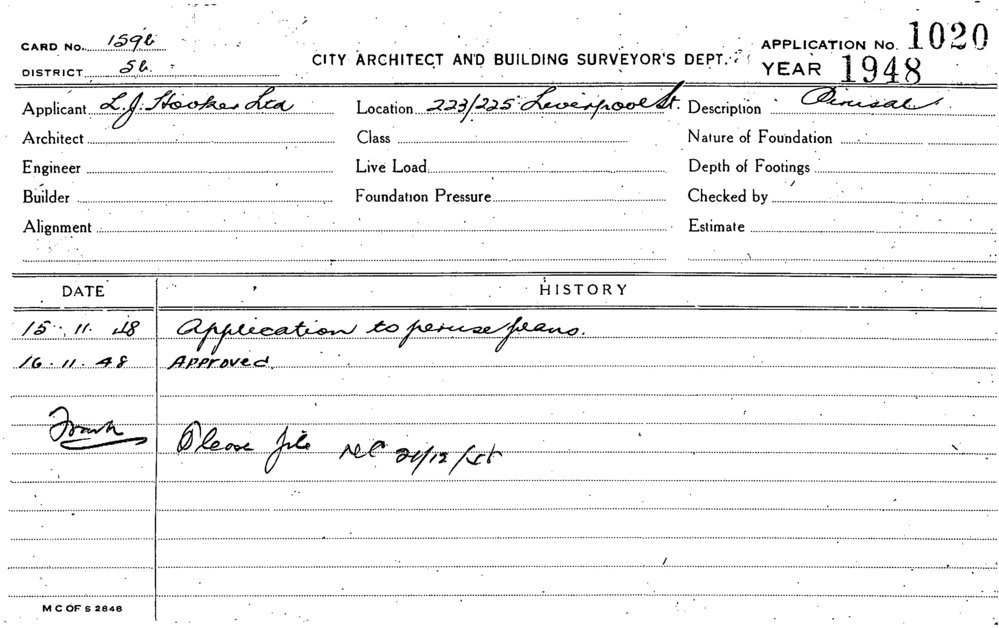 CARD No. 1596
APPLICATION No. 1020
DISTRICT 56.
CITY ARCHITECT AND BUILDING SURVEYOR'S DEPT.
YEAR 1948
Applicant L.J. Hooker Ltd Location 223/225 Liverpool St. Description Perusal
Architect Class Nature of Foundation
Engineer Live Load Depth of Footings
Builder Foundation Pressure Checked by
Alignment Estimate
DATE HISTORY
15.11.48 Application to peruse plans.
16.11.48 Approved.
Frank Please file 21/12/48
M C OF S 2848